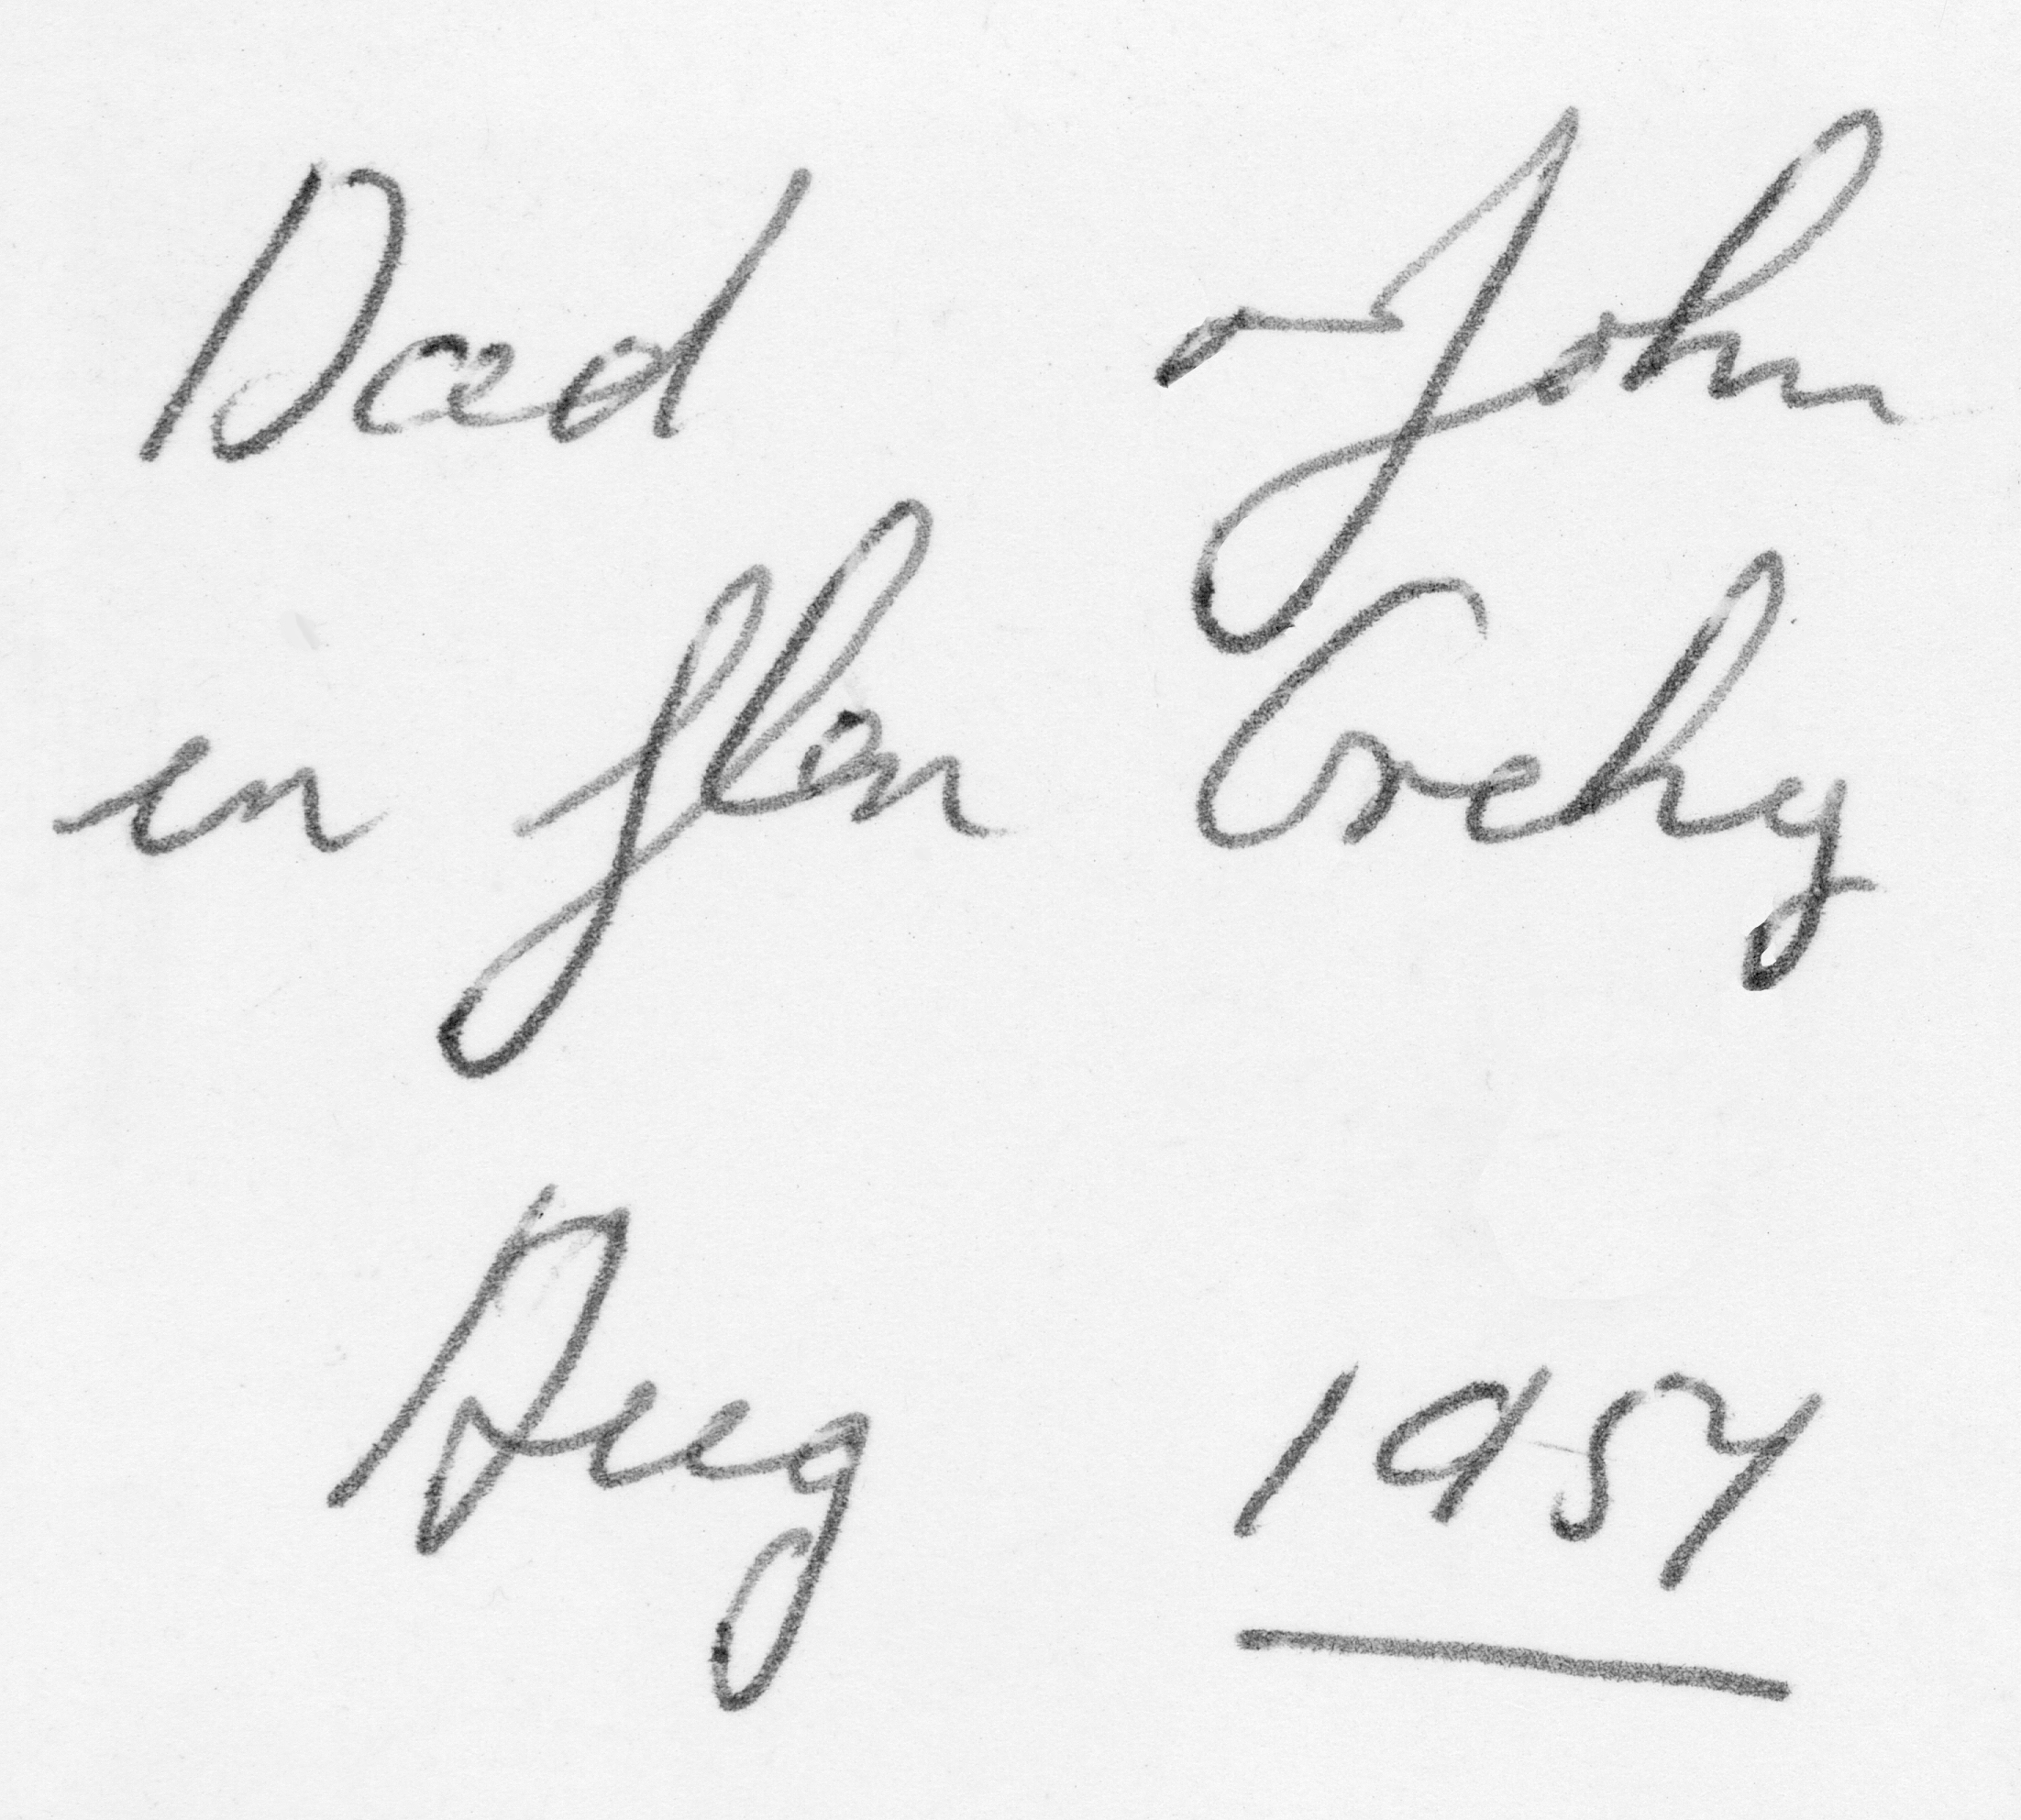 Dad & John
in Glen Orchy
Aug 1957